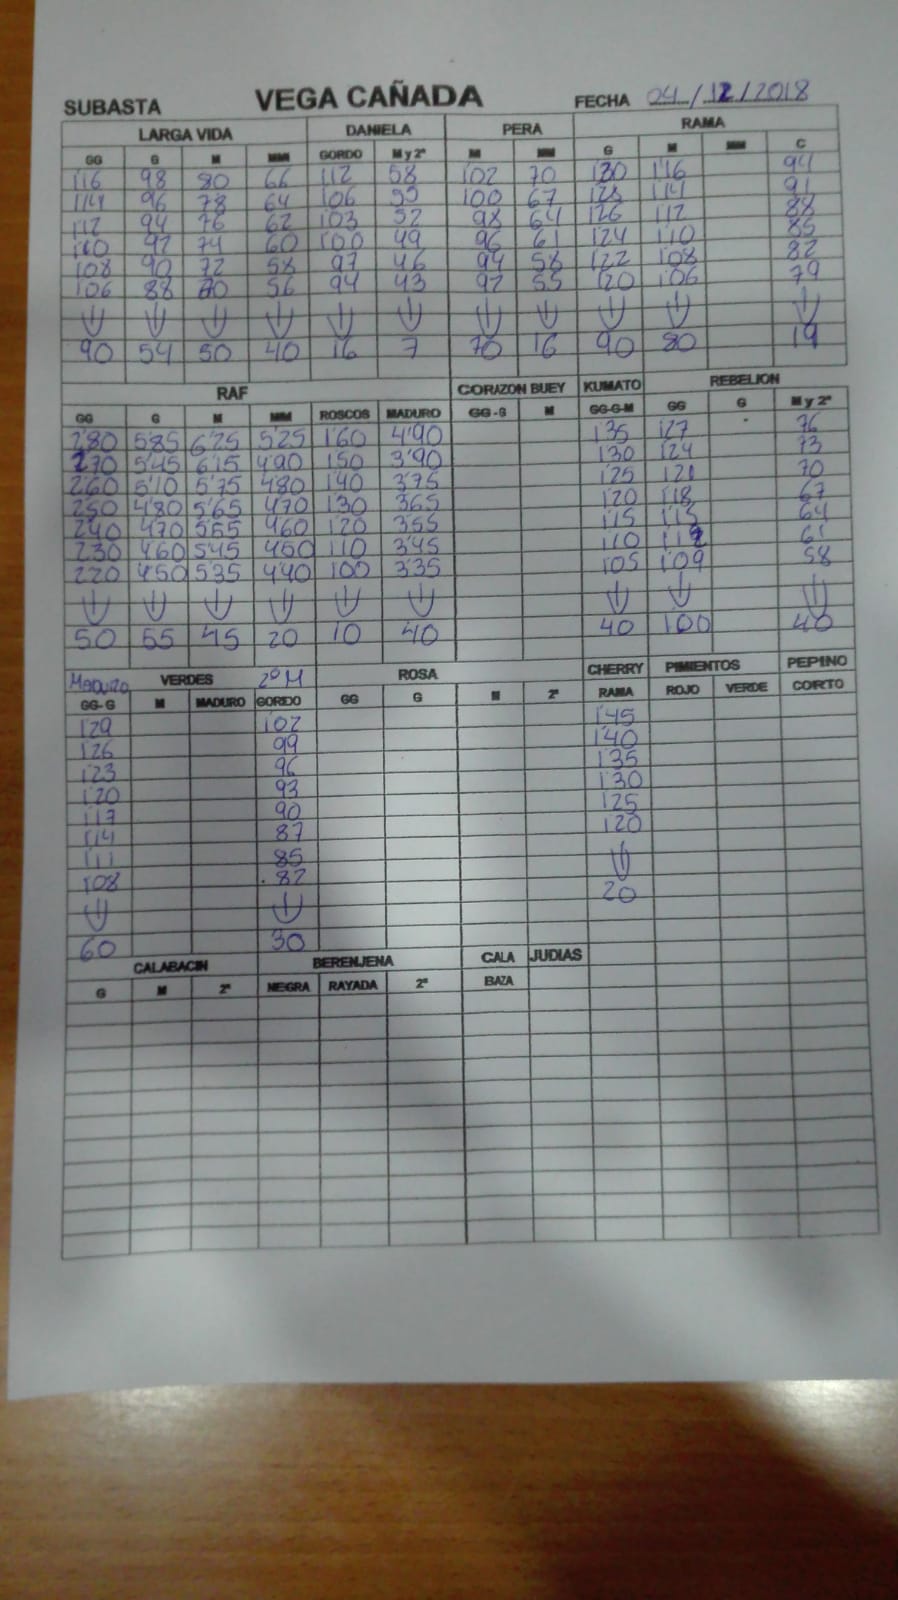 SUBASTA VEGA CAÑADA FECHA 04/12/2018
LARGA VIDA DANIELA PERA RAMA
GG G M MM GORDO M y 2ª M MM G M MM C
1'16 98 80 66 1'12 58 1'02 70 1'30 1'16 94
1'14 96 78 64 1'06 55 1'00 67 1'28 1'14 91
1'12 94 76 62 1'03 52 98 64 1'26 1'12 88
1'10 92 74 60 1'00 49 96 61 1'24 1'10 85
1'08 90 72 58 97 46 94 58 1'22 1'08 82
1'06 88 70 56 94 43 92 55 1'20 1'06 79
90 54 50 40 16 7 70 16 90 80 19
RAF CORAZON BUEY KUMATO REBELION
GG G M MM ROSCOS MADURO GG-G M GG-G-M GG G M y 2ª
2'80 5'85 6'25 5'25 1'60 4'90 1'35 1'27 76
2'70 5'45 6'15 4'90 1'50 3'90 1'30 1'24 73
2'60 5'10 5'75 4'80 1'40 3'75 1'25 1'21 70
2'50 4'80 5'65 4'70 1'30 3'65 1'20 1'18 67
2'40 4'70 5'55 4'60 1'20 3'55 1'15 1'15 64
2'30 4'60 5'45 4'50 1'10 3'45 1'10 1'12 61
2'20 4'50 5'35 4'40 1'00 3'35 1'05 1'09 58
50 55 45 20 10 40 40 1'00 40
Maduro VERDES 2ª M ROSA CHERRY PIMIENTOS PEPINO
GG-G M MADURO GORDO GG G M 2ª RAMA ROJO VERDE CORTO
1'29 1'02 1'45
1'26 99 1'40
1'23 96 1'35
1'20 93 1'30
1'17 90 1'25
1'14 87 1'20
1'11 85
1'08 82 20
60 30
CALABACIN BERENJENA CALA JUDIAS
G M 2ª NEGRA RAYADA 2ª BAZA